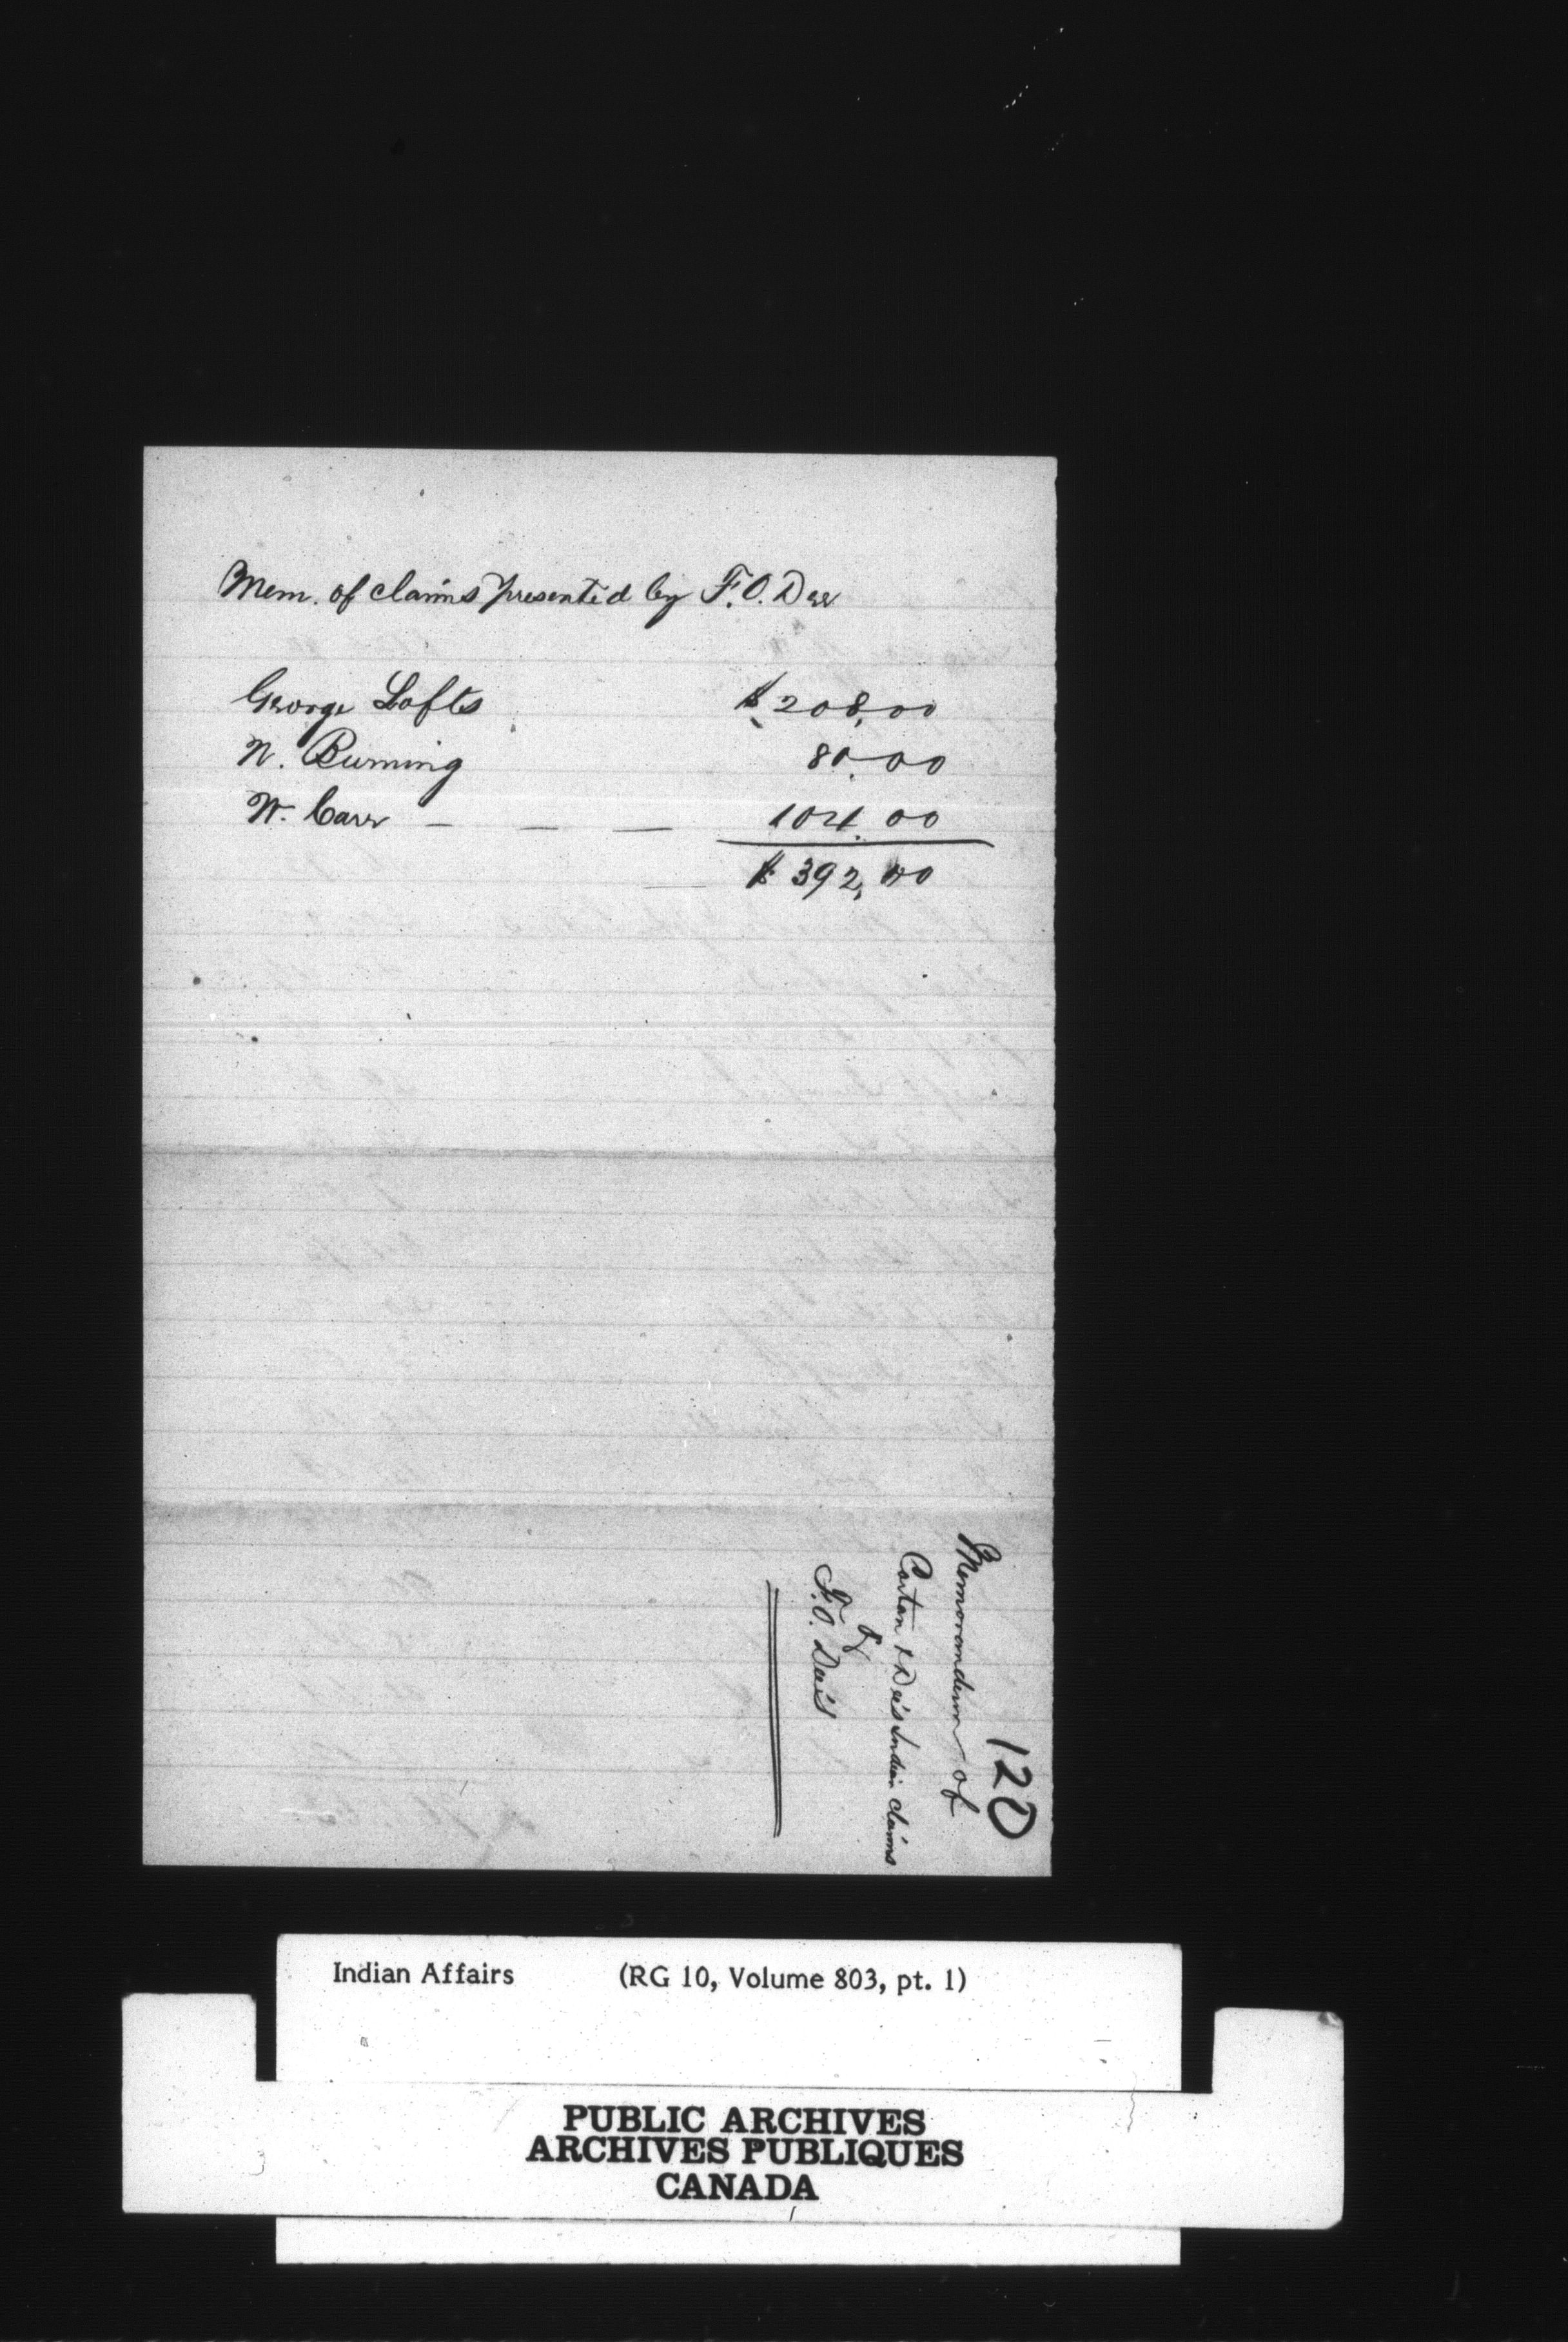 Mem. of claims presented by F. O. Dee
George Lofts $208.00
N. Burning 80.00
W. Carr — — — 104.00
$392.00
120
Memorandum of
& Dee's Indian claims
of
F. O. Dee's
Indian Affairs (RG 10, Volume 803, pt. 1)
PUBLIC ARCHIVES
ARCHIVES PUBLIQUES
CANADA